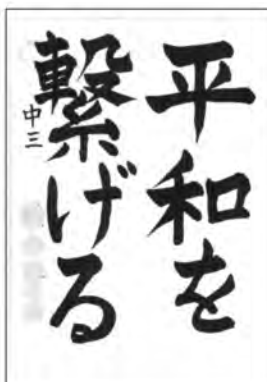 平和を
繋げる
中三